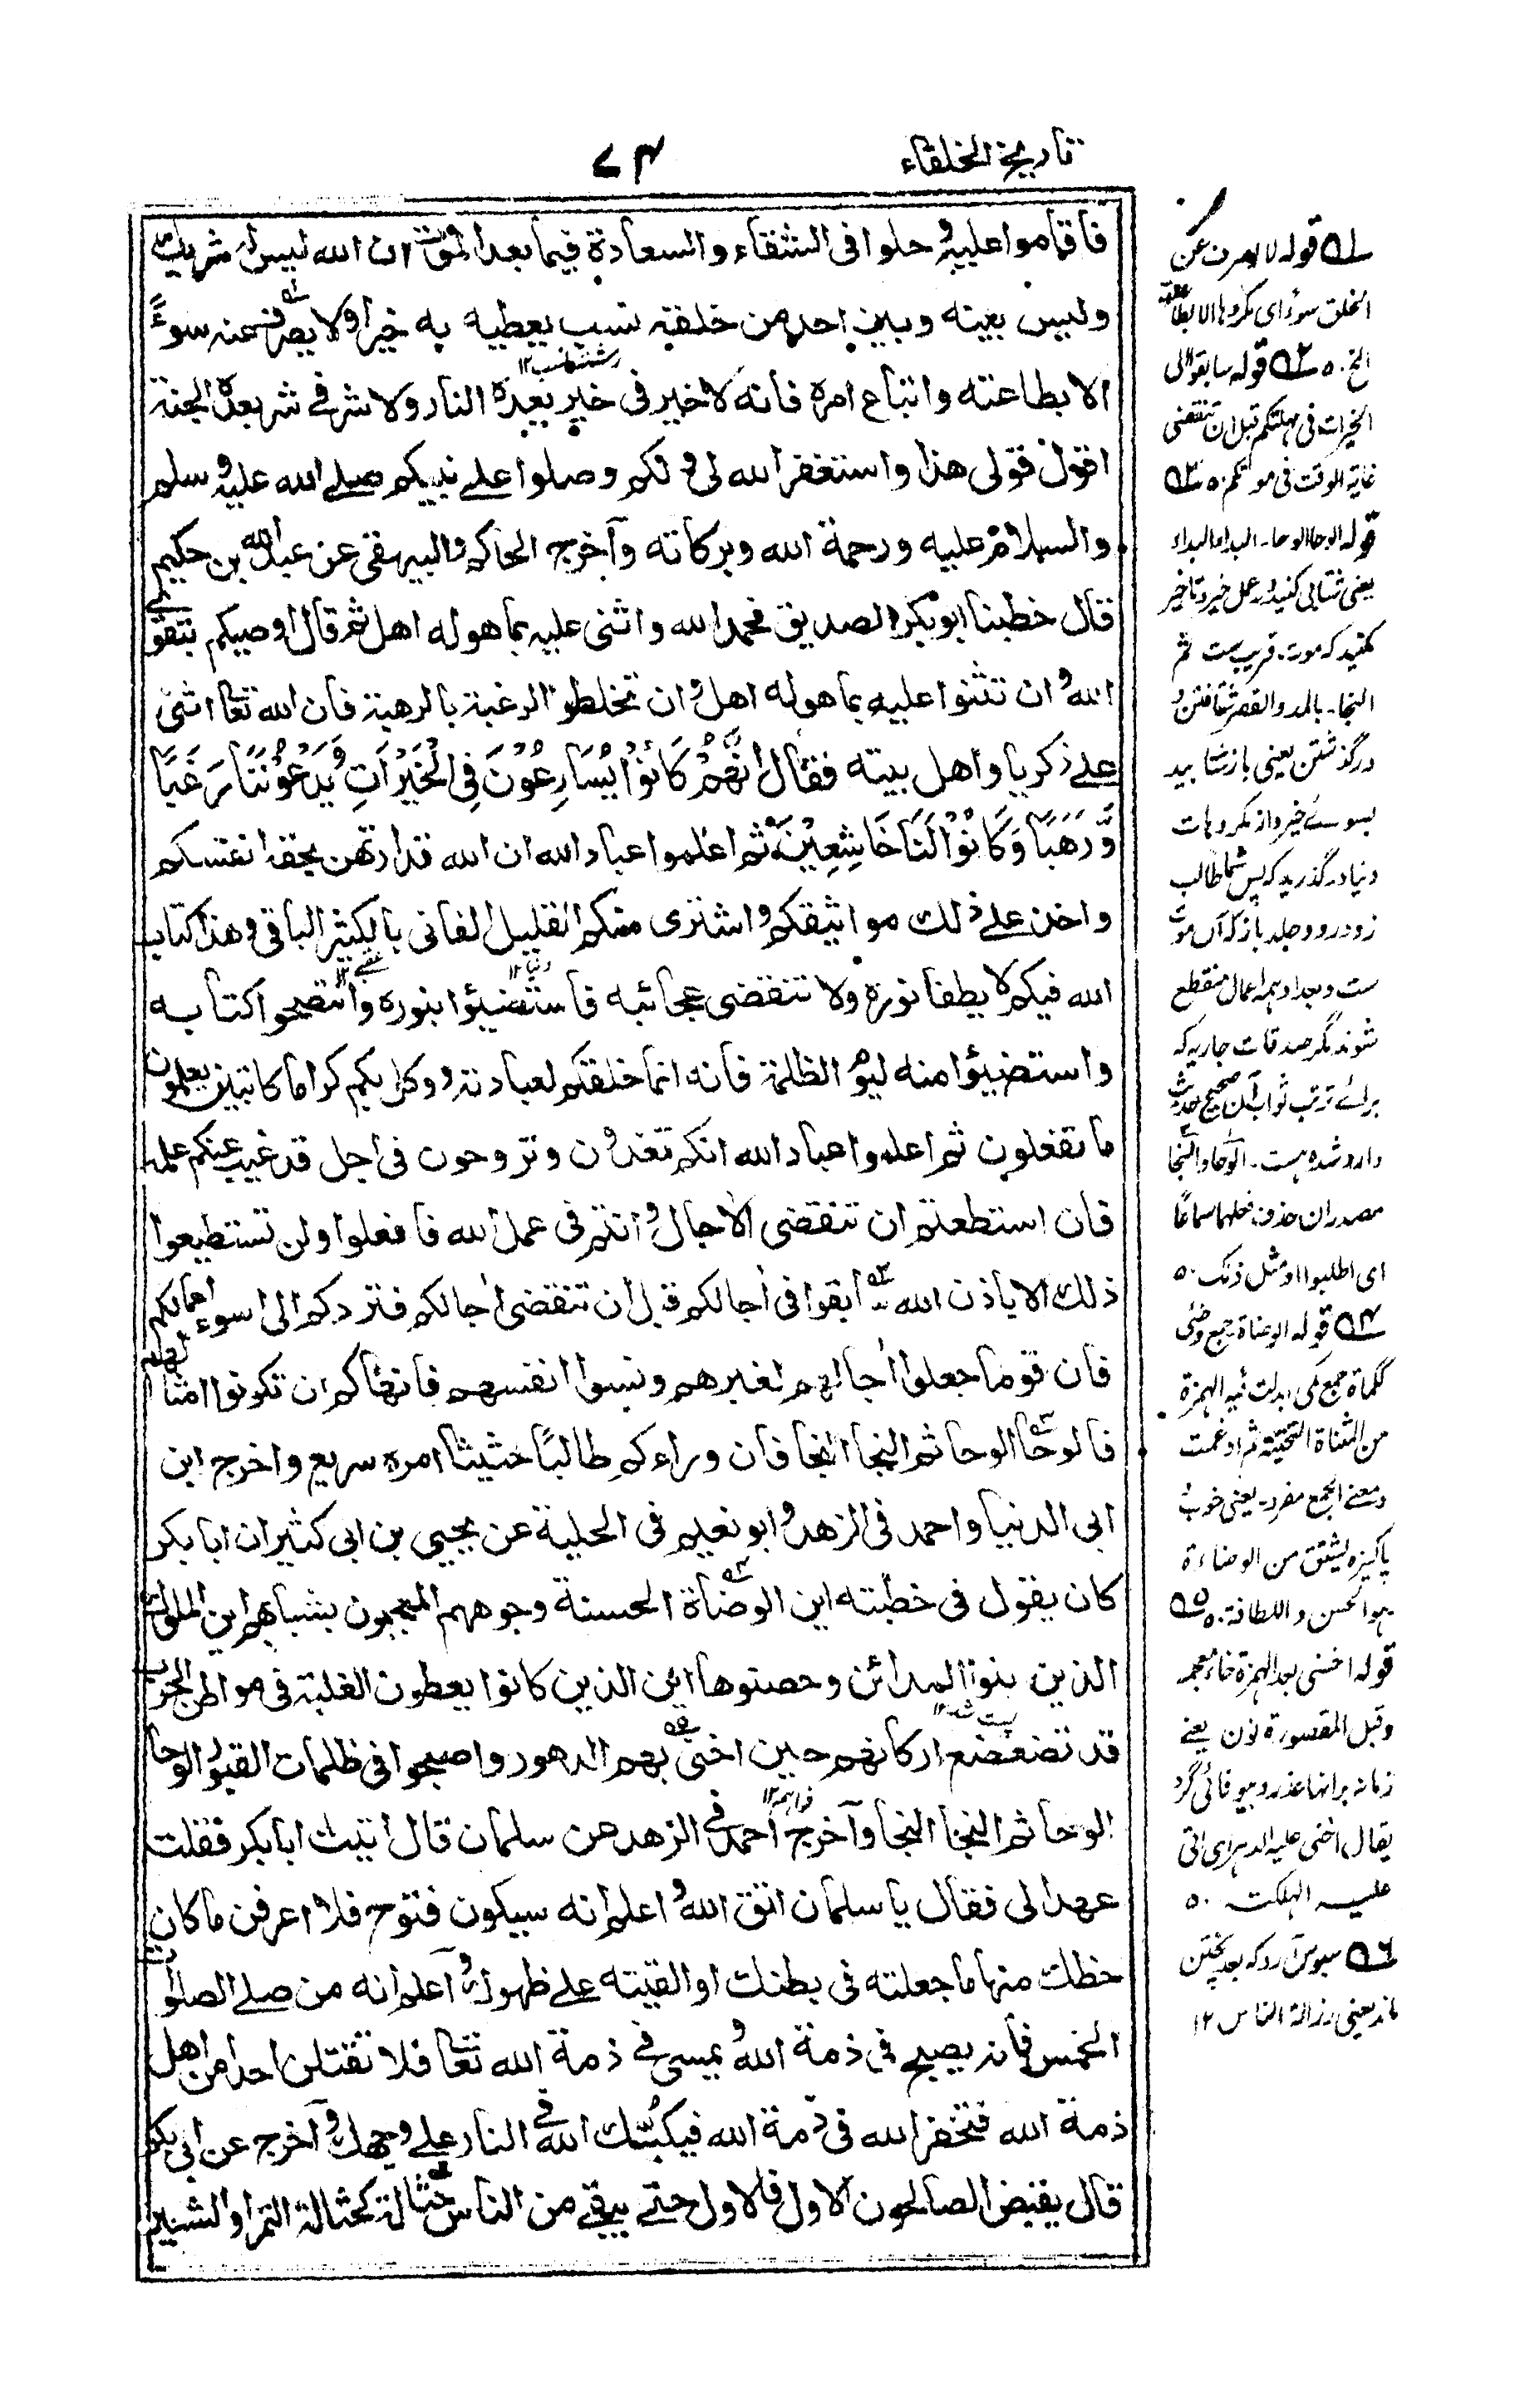 تاريخ الخلفاء
٧٤
فاقاموا عليه وحلوا فى الشقاء والسعادة فيما بعد الموت ان الله ليس له شريك
وليس بينه وبين احد من خلقه نسب يعطيه به خيرا ولا يصرف عنه سوءً
الا بطاعته واتباع امره فانه لا خير فى خير بعده النار ولا شر فى شر بعده الجنة
اقول قولى هذا واستغفر الله لى ولكم وصلوا على نبيكم صلى الله عليه وسلم
والسلام عليه ورحمة الله وبركاته وآخرج الحاكم والبيهقى عن عبد الله بن حكيم
قال خطبنا ابو بكر الصديق فحمد الله واثنى عليه بما هو له اهل ثم قال اوصيكم بتقوى
الله وان تثنوا عليه بما هو له اهل وان تخلطوا الرغبة بالرهبة فان الله تعا اثنى
على ذكريا واهل بيته فقال اِنَّهُمْ كَانُوْا يُسَارِعُوْنَ فِى الْخَيْرَاتِ وَيَدْعُوْنَنَا رَغَبًا
وَّرَهَبًا وَكَانُوْا لَنَا خَاشِعِيْنَ ثم اعلموا عباد الله ان الله قد ارتهن بحقه انفسكم
واخذ على ذلك مواثيقكم واشترى منكم القليل الفانى بالكثير الباقى وهذا كتاب
الله فيكم لا يطفأ نوره ولا تنقضى عجائبه فاستضيؤا بنوره وانتصحوا كتابه
واستضيؤا منه ليوم الظلمة فانه انما خلقكم لعبادته ووكل بكم كراما كاتبين يعلمون
ما تفعلون ثم اعلموا عباد الله انكم تغدون وتروحون فى اجل قد غيب عنكم علمه
فان استطعتم ان تنقضى الاجال وانتم فى عمل الله فافعلوا ولن تستطيعوا
ذلك الا باذن الله سابقوا فى اجالكم قبل ان تنقضى اجالكم فتردكم الى اسوء اعمالكم
فان قوما جعلوا اجالهم لغيرهم ونسوا انفسهم فانهاكم ان تكونوا امثالهم
فالوحا الوحا ثم النجا النجا فان وراءكم طالبًا حثيثا امره سريع واخرج ابن
ابى الدنيا واحمد فى الزهد وابو نعيم فى الحلية عن يحيى بن ابى كثير ان ابا بكر
كان يقول فى خطبته اين الوضاة الحسنة وجوههم المعجبون بشبابهم اين الملوك
الذين بنوا المدائن وحصنوها اين الذين كانوا يعطون الغلبة فى مواطن الحرب
قد تضعضع اركانهم حين اخنى بهم الدهور واصبحوا فى ظلمات القبور الوحا
الوحا ثم النجا النجا وآخرج احمد فى الزهد عن سلمان قال اتيت ابا بكر فقلت
عهد الى فقال يا سلمان اتق الله واعلم انه سيكون فتوح فلا اعرفن ما كان
حظك منها ما جعلته فى بطنك او القيته على ظهرك واعلم انه من صلى الصلوات
الخمس فانه يصبح فى ذمة الله ويمسى فى ذمة الله تعا فلا تقتلن احدا من اهل
ذمة الله فتخفر الله فى ذمة الله فيكبك الله فى النار على وجهك وآخرج عن ابى بكر
قال يقبض الصالحون الاول فالاول حتى يبقى من الناس حثالة كحثالة التمر والشعير
قوله لا يصرف عن
الخلق سوء اى مكروها الا بطاعته
الخ ٥٠ قوله سابقوا الى
الخيرات فى مهلتكم قبل ان تنقضى
غاية الوقت فى موتكم ٥٠
قوله الوحا الوحا۔ البدا البداء
يعنى شتابى كنيد در عمل خير وتاخير
مكنيد كه موت قريب ست ثم
النجا۔ بالمد والقصر شتافتن و
درگذشتن يعنى باز شتابيد
بسوئے خير واز مكروهات
دنيا درگذريد كه پس شما طالب
زود رو وجلد باز كه آن موت
ست وبعد او همه اعمال منقطع
شوند مگر صدقات جاريه كه
برائے ترتب ثواب آن صحيح حديث
وارد شده است۔ الوحا والنجا
مصدران حذف فعلهما سماعًا
اى اطلبوا او مثل ذلك ٥٠
قوله الوضاة جمع وضى
كماة جمع كمى ابدلت فيه الهمزة
من المثناة التحتية ثم ادغمت
ومعنے الجمع مفرد۔ يعنى خوب
پاكيزه يشتق من الوضاءة
هو الحسن واللطافة ٥٠
قوله اخنى بعد الهمزة خاء معجمه
وقبل المقصورة نون يعنے
زمانه بر انها غدر وبيوفائى كرد
يقال اخنى عليه الدهر اى اتى
عليه الهلكت ٥٠
سبوس آرد كه بعد بيختن
ماند يعنى رذالة الناس ١٢